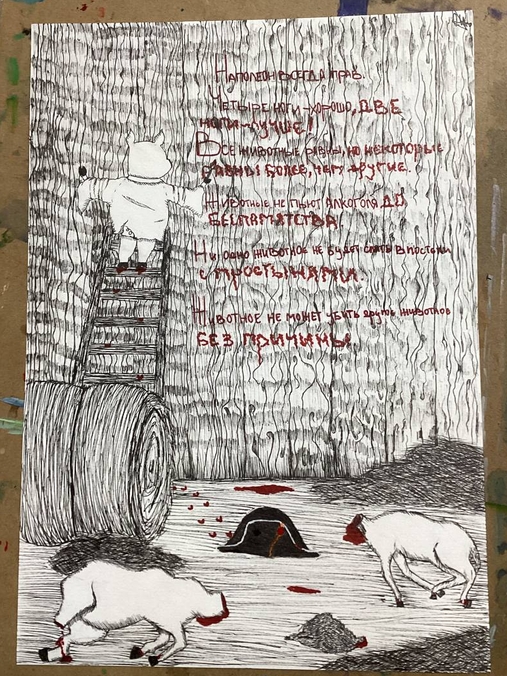 Наполеон всегда прав.
Четыре ноги - хорошо, две
ноги - лучше!
Все животные равны, но некоторые
равны более, чем другие.
Животные не пьют алкоголя до
беспамятства.
Ни одно животное не будет спать в постели
с простынями.
Животное не может убить другое животное
без причины.